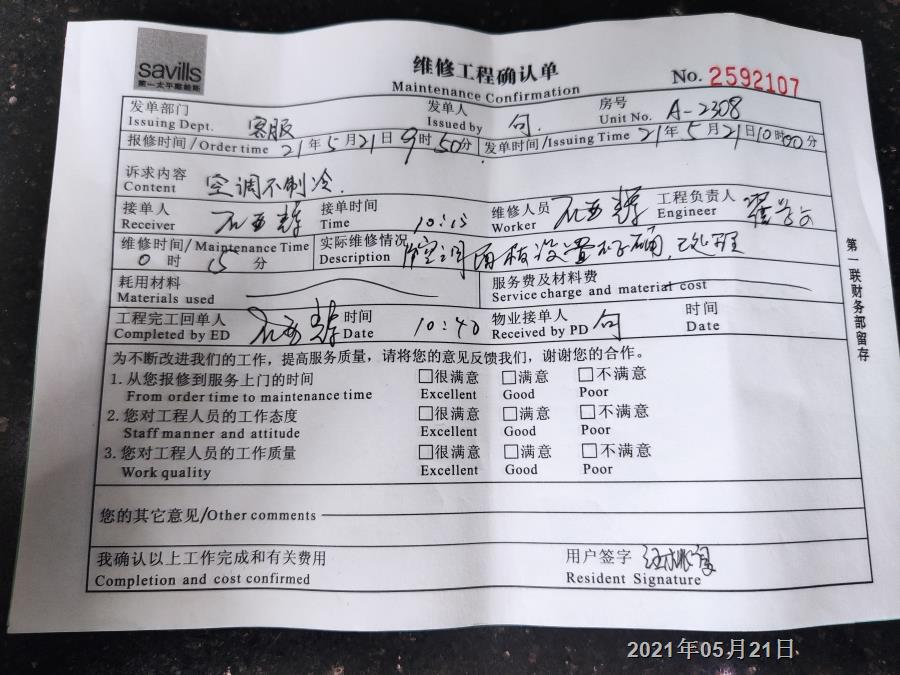 savills
第一太平戴维斯
维修工程确认单
Maintenance Confirmation
No. 2592107
发单部门 客服 发单人 句 房号 A-2308
Issuing Dept. Issued by Unit No.
报修时间/Order time 21年5月21日9时50分 发单时间/Issuing Time 21年5月21日10时00分
诉求内容 空调不制冷.
Content
接单人 接单时间 10:15 维修人员 工程负责人
Receiver Time Worker Engineer
维修时间/Maintenance Time 实际维修情况 空调面板设置不正确,已处理
0时15分 Description
耗用材料 服务费及材料费
Materials used Service charge and material cost
工程完工回单人 时间 10:40 物业接单人 句 时间
Completed by ED Date Received by PD Date
为不断改进我们的工作,提高服务质量,请将您的意见反馈我们,谢谢您的合作。
1.从您报修到服务上门的时间 □很满意 □满意 □不满意
From order time to maintenance time Excellent Good Poor
2.您对工程人员的工作态度 □很满意 □满意 □不满意
Staff manner and attitude Excellent Good Poor
3.您对工程人员的工作质量 □很满意 □满意 □不满意
Work quality Excellent Good Poor
您的其它意见/Other comments
我确认以上工作完成和有关费用 用户签字
Completion and cost confirmed Resident Signature
第一联财务部留存
2021年05月21日